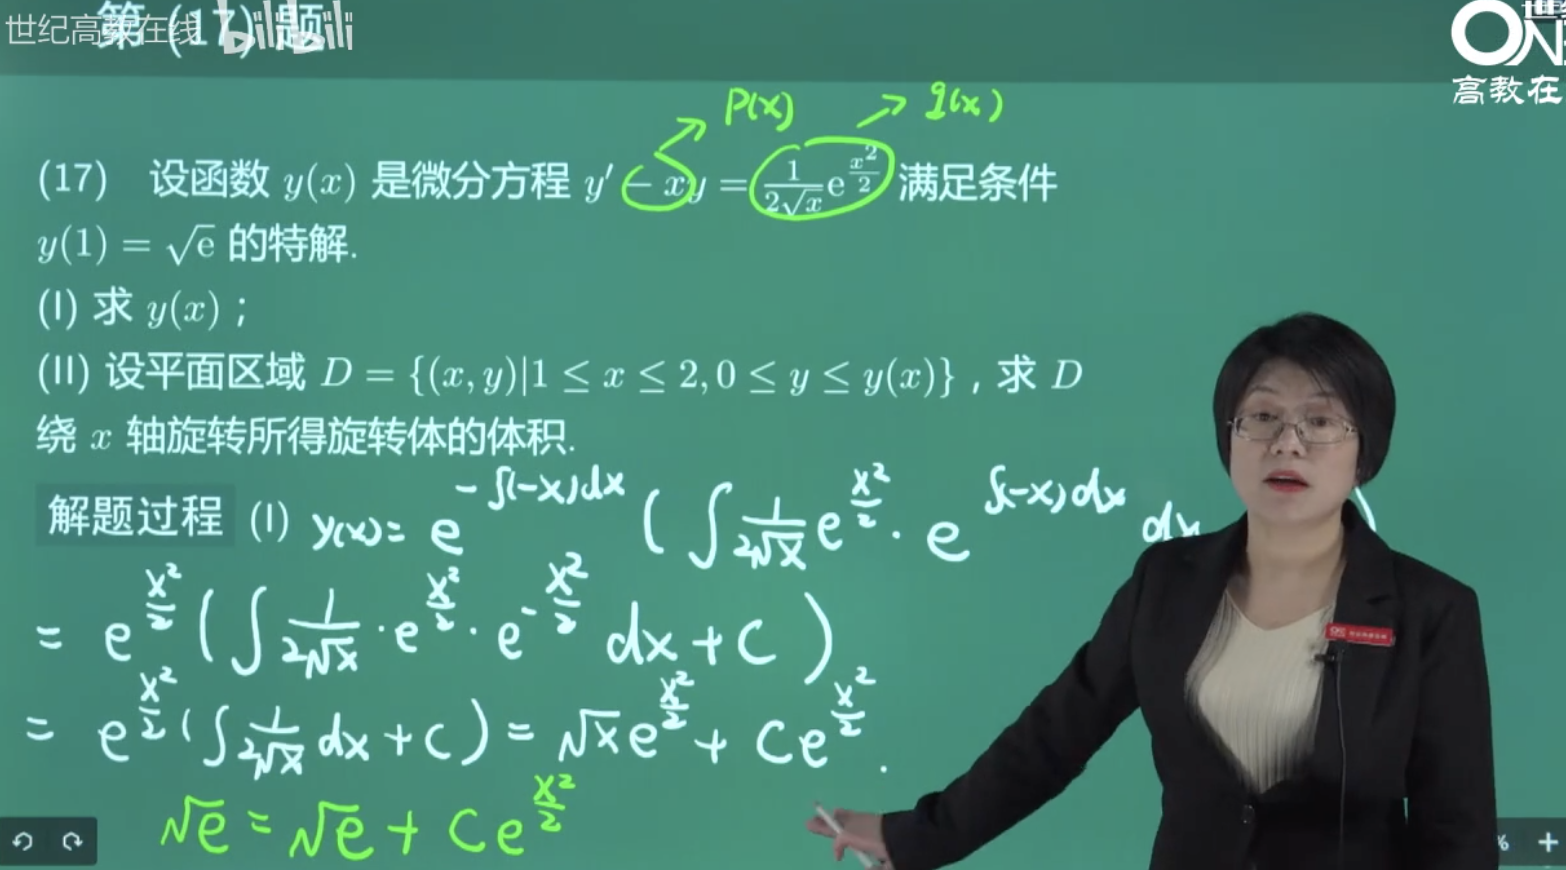 世纪高教在线 bilibili
第 (17) 题
高教在
P(x) q(x)
(17) 设函数 y(x) 是微分方程 y′ − xy = \frac{1}{2√x}e^{\frac{x²}{2}} 满足条件
y(1) = √e 的特解.
(I) 求 y(x) ;
(II) 设平面区域 D = {(x, y)|1 ≤ x ≤ 2, 0 ≤ y ≤ y(x)} , 求 D
绕 x 轴旋转所得旋转体的体积.
解题过程 (I) y(x) = e^{-∫(-x)dx} ( ∫ \frac{1}{2√x} e^{\frac{x²}{2}} · e^{∫(-x)dx} dx )
= e^{\frac{x²}{2}} ( ∫ \frac{1}{2√x} · e^{\frac{x²}{2}} · e^{-\frac{x²}{2}} dx + C )
= e^{\frac{x²}{2}} ( ∫ \frac{1}{2√x} dx + C ) = √x e^{\frac{x²}{2}} + C e^{\frac{x²}{2}} .
√e = √e + C e^{\frac{x²}{2}}
% +